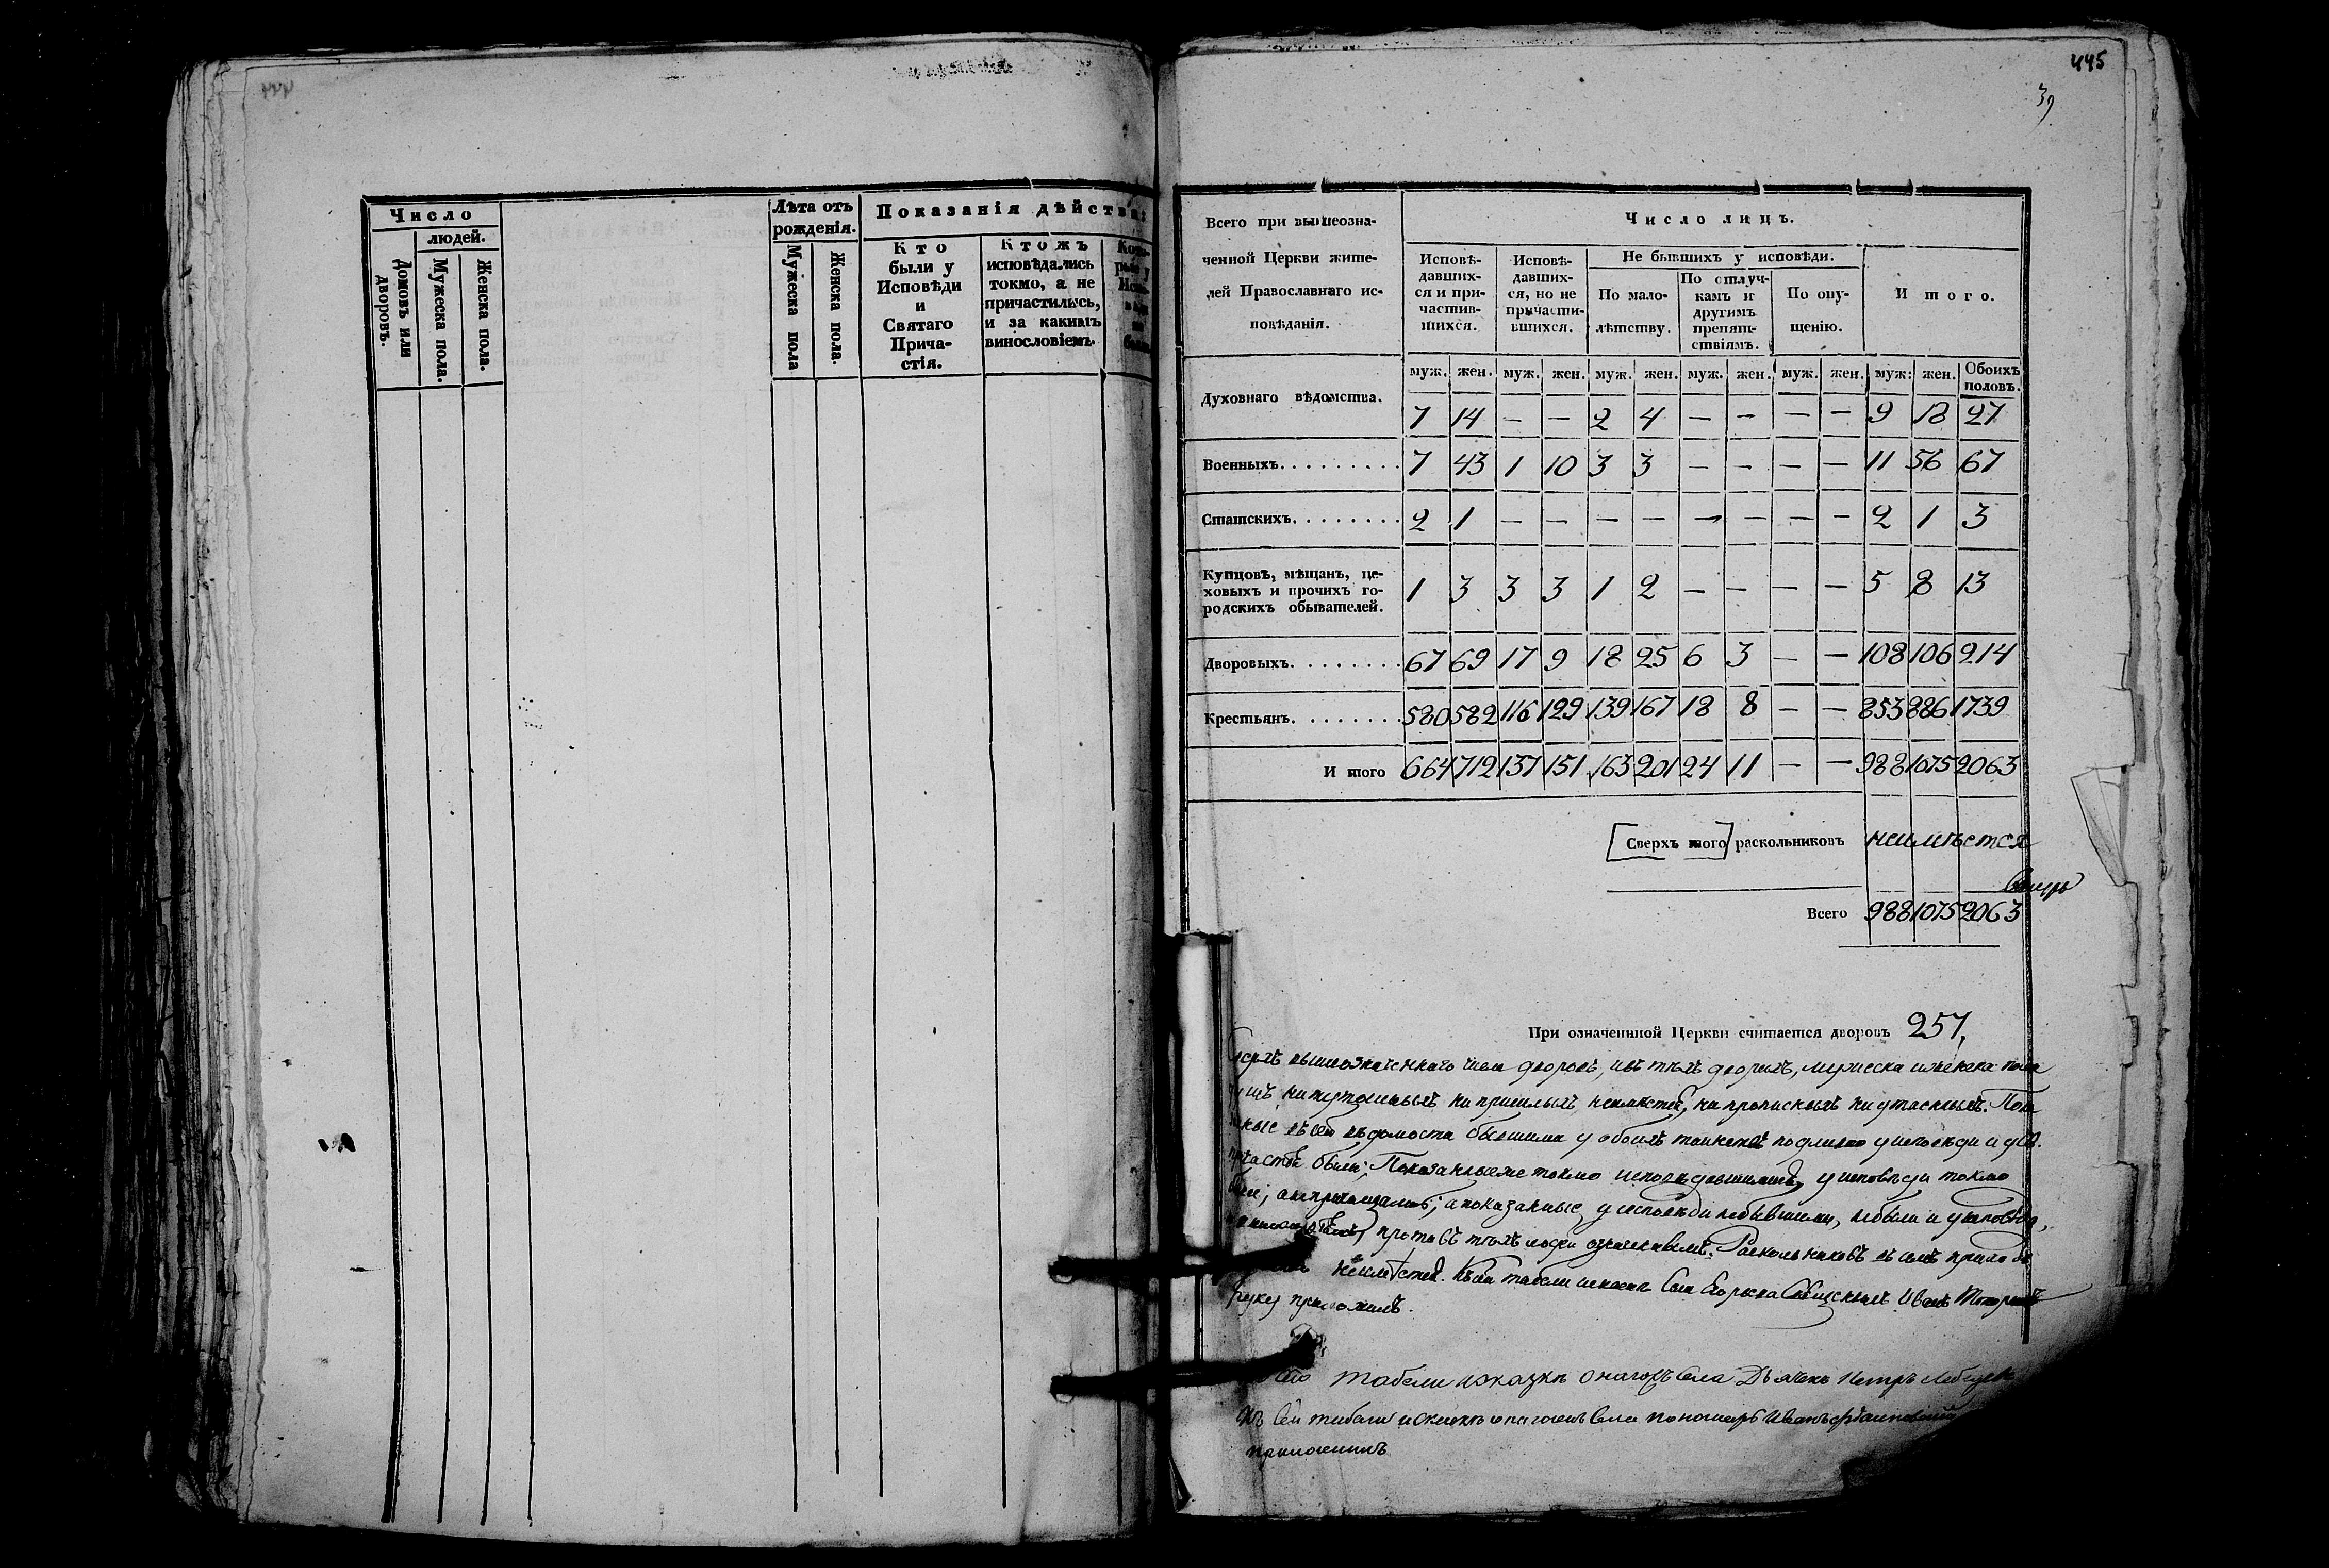 445
39
Число
людей.
Домовъ или дворовъ.
Мужеска пола.
Женска пола.
Лѣта отъ рожденія.
Мужеска пола
Женска пола.
Показанія дѣйства:
Кто были у Исповѣди и Святаго Причастія.
Ктожъ исповѣдались токмо, а не причастились, и за какимъ винословіемъ.
Всего при вышеозна-
ченной Церкви жите-
лей Православнаго ис-
повѣданія.
Число лицъ.
Исповѣ-
давших-
ся и при-
частив-
шихся.
Исповѣ-
давших-
ся, но не
причасти-
вшихся.
Не бывшихъ у исповѣди.
По мало-
лѣтству.
По отлуч-
камъ и
другимъ
препят-
ствіямъ.
По опу-
щенію.
Итого.
муж. жен. муж. жен. муж. жен. муж. жен. муж. жен. муж: жен. Обоихъ половъ.
Духовнаго вѣдомства. 7 14 — — 2 4 — — — — 9 18 27
Военныхъ......... 7 43 1 10 3 3 — — — — 11 56 67
Статскихъ........ 2 1 — — — — — — — — 2 1 3
Купцовъ, мѣщанъ, це-
ховыхъ и прочихъ го-
родскихъ обывателей. 1 3 3 3 1 2 — — — — 5 8 13
Дворовыхъ........ 67 69 17 9 18 25 6 3 — — 108 106 214
Крестьянъ........ 580 582 116 129 139 167 18 8 — — 853 886 1739
И того 664 712 137 151 163 201 24 11 — — 988 1075 2063
Сверхъ того раскольниковъ неимѣется
Всего 988 1075 2063
При означенной Церкви считается дворовъ 257,
вышеозначеннаго числа дворовъ, и въ тѣхъ дворахъ, мужеска и женска пола
ни пришлыхъ неимѣется, ни прописныхъ ни утаенныхъ.
въ сей вѣдомости бывшими у обоихъ таинствъ подлинно у исповѣди и у Св.
были; Показанныеже токмо исповѣдавшимися, у исповѣди токмо
а непричащались; а показанные у исповѣди небывшими, небыли и у исповѣди,
противъ тѣхъ Раскольниковъ въ семъ приходѣ
неимѣется. Къ сей табели Села Священникъ Иванъ
руку приложилъ.
табели и сказкѣ онагожъ села Дьячекъ Петръ
Къ сей табели и сказкѣ онагожъ села пономарь Иванъ
приложилъ